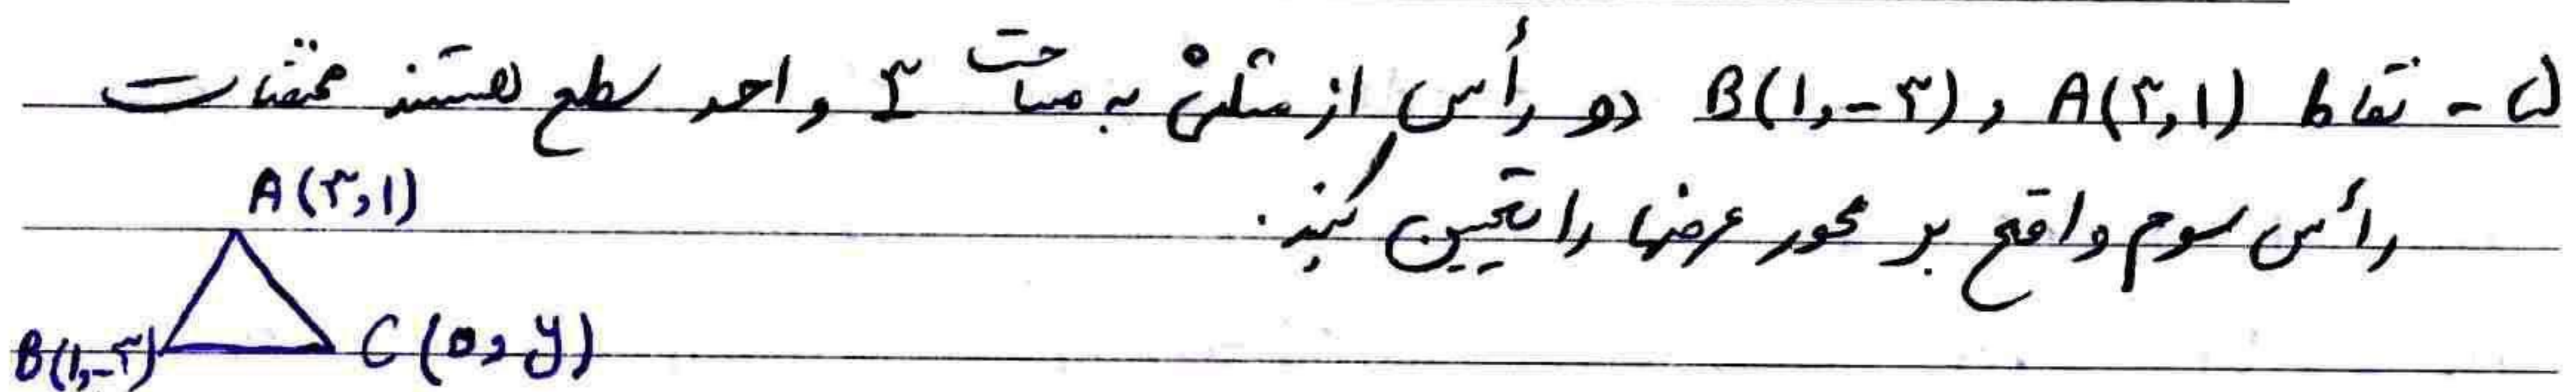 ۵ - نقاط A(۳,۱) و B(۱,-۳) دو رأس از مثلثی به مساحت ۳ واحد سطح هستند مختصات
رأس سوم واقع بر محور عرضها را تعیین کنید.
A(۳,۱)
B(۱,-۳) C(۰,y)